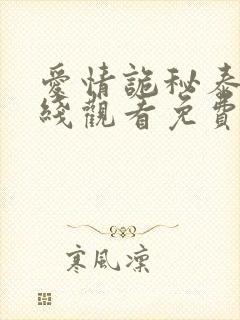 愛情詭秘泰
綫觀看免費
寒風凜